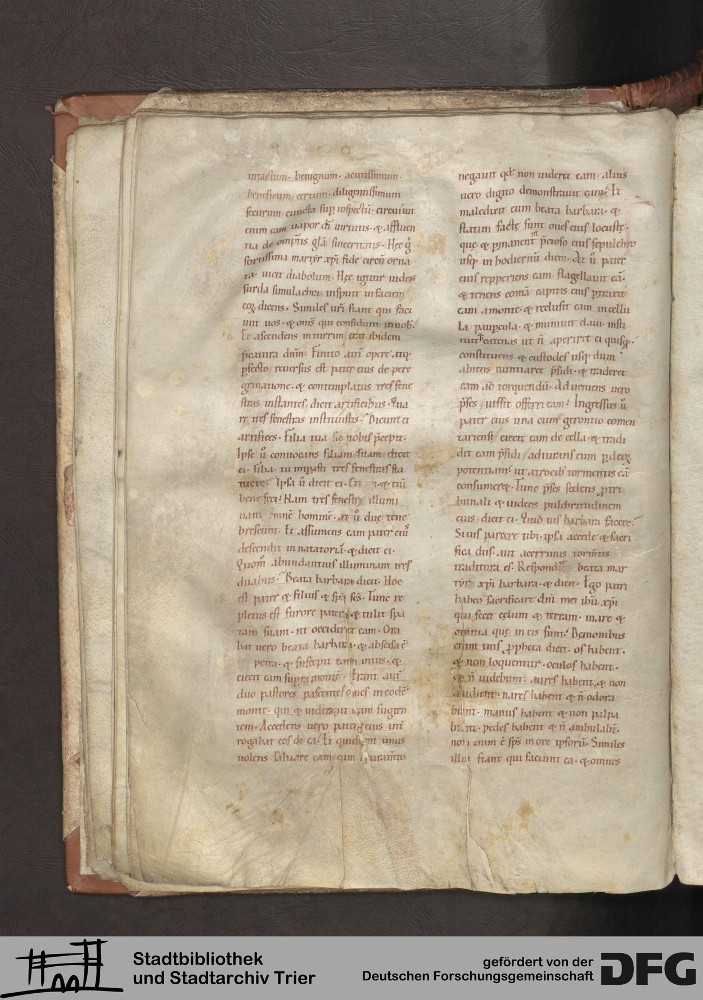 benignum. acutissimum.
beneficum certum. diligentissimum
securum. cuncta sup inspectũ. circuiuit
enim eam uapor di uirtutis. & affluen
tia de omptis glã sinceritatis. Hęc g
fortissima martyr xpi fide circũ orna
ta. uicit diabolum. Hęc igitur uidens
surda simulachra. inspuit in faciem
eoꝝ dicens. Similes uri fiant qui faci
unt uos. & oms qui confidunt in uob.
Et ascendens in turrim erat ibidem
pcatura dnm. Finito aut opere atq;
pfecto. reuersus est pater eius de pere
grinatione. & contemplatus tres fene
stras instantes. dicit artificibus. Qua
re tres fenestras instruxistis. Dicunt ei
artifices. Filia tua sic nobis pcepit.
Ipse u conuocans filiam suam. dixit
ei. Filia. tu iussisti tres fenestras sta
tuere. Ipsa u dicit ei.
bene feci. Nam tres fenestrę illumi
nant omnẽ hominẽ. at u duę tene
brescunt. Et assumens eam pater eius
descendit in natatoriã. & dicit ei.
Quom abundantius illuminant tres
duabus. Beata barbara dicit. Hoc
est pater & filius & sps scs. Tunc re
pletus est furore pater & tulit spa
tam suam. ut occideret eam. Ora
bat uero beata barbara. & abscisa ẽ
petra. & suscepit eam intus. &
eiecit eam super montẽ. Erant aut
duo pastores pascentes oues in eodẽ
monte. qui & uiderunt eam fugien
tem. Accedens uero pater eius int
rogabat eos de ea. Et quidem unus
uolens saluare eam. cum iuramto
negauit qd non uiderit eam. alius
uero digito demonstrauit eam. Et
maledixit eum beata barbara. &
statim factę sunt oues eius locustę.
quę & pmanent in pcioso eius sepulchro
usq; in hodiernũ diem. At u pater
eius repperiens eam. flagellauit eã.
& tenens comã capitis eius ptraxit
eam a monte. & reclusit eam in cellu
la paupcula. & muniuit claui. insti
tuit
constituens & custodes usq; dum
abiens nuntiaret psidi. & traderet
eam ad torquendũ. Adueniens uero
pses iussit offerri eam. Ingressus u
pater eius una cum gerontio comen
tariensẽ. eiecit eam de cella. & tradi
dit eam psidi. adiurans eum p deoꝝ
potentiam. ut atrocib tormentis eã
consumeret. Tunc pses sedens p tri
bunali. & uidens pulchritudinem
eius. dicit ei. Quid uis barbara facere?
Si uis parcere tibi ipsi. accede & sacri
fica diis. aut acerrimis tormtis
traditura es. Respondit beata mar
tyr xpi barbara. & dicit. Ego patri
habeo sacrificare dni mei ihu xpi
qui fecit cęlum & terram. mare &
omnia quę in eis sunt. Demonibus
enim uris ppheta dicit. Os habent.
& non loquentur. oculos habent.
& ñ uidebunt. aures habent. & non
audient. nares habent & ñ odora
bunt. manus habent & non palpa
bunt. pedes habent & ñ ambulabt.
non enim ẽ sps in ore ipsorũ. Similes
illis fiant qui faciunt ea. & omnes
Stadtbibliothek
und Stadtarchiv Trier
gefördert von der
Deutschen Forschungsgemeinschaft
DFG